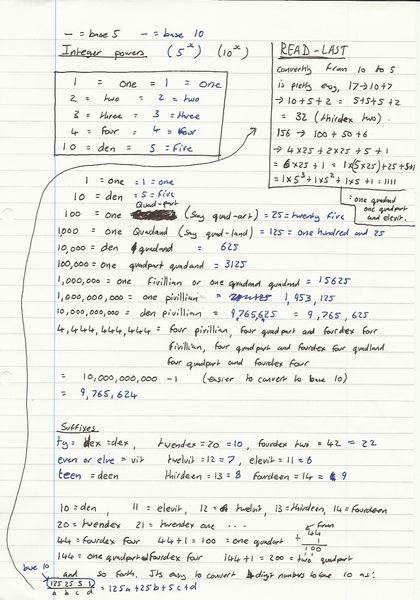 — = base 5 — = base 10
Integer powers (5^x) (10^x)
1 = one = 1 = one
2 = two = 2 = two
3 = three = 3 = three
4 = four = 4 = four
10 = den = 5 = five
READ-LAST
converting from 10 to 5
is pretty easy, 17 → 10+7
→ 10+5+2 = 5+5+5+2
= 32 (thirdex two).
156 → 100 + 50 + 6
→ 4×25 + 2×25 + 5 + 1
= 6×25 + 1 = 1×(5×25) + 25 + 5 + 1
= 1×5^3 + 1×5^2 + 1×5 + 1 = 1111
= one quadland
one quadpart
and elevit.
1 = one = 1 = one
10 = den = 5 = five
Quad-part
100 = one (say quad-art) = 25 = twenty five
1,000 = one Quadland (say quad-land) = 125 = one hundred and 25
10,000 = den quadland = 625
100,000 = one quadpart quadland = 3125
1,000,000 = one Fivillian or one quadland quadland = 15625
1,000,000,000 = one pivillian = 1,953,125
10,000,000,000 = den pivillian = 9,765,625 = 9,765,625
4,444,444,444 = four pivillian, four quadpart and fourdex four
fivillian, four quadpart and fourdex four quadland
four quadpart and fourdex four
= 10,000,000,000 -1 (easier to convert to base 10)
= 9,765,624
Suffixes
ty = dex, twendex = 20 = 10, fourdex two = 42 = 22
even or elve = vit twelvit = 12 = 7, elevit = 11 = 6
teen = deen thirdeen = 13 = 8 fourdeen = 14 = 9
10 = den, 11 = elevit, 12 = twelvit, 13 = thirdeen, 14 = fourdeen
20 = twendex 21 = twendex one ...
44 = fourdex four 44+1 = 100 = one quadpart
from
44
+ 1
100
144 = one quadpart fourdex four 144+1 = 200 = two quadpart
and so forth. Its easy to convert 4 digit numbers to base 10 as:
base 10
125 25 5 1 = 125a + 25b + 5c + d
a b c d